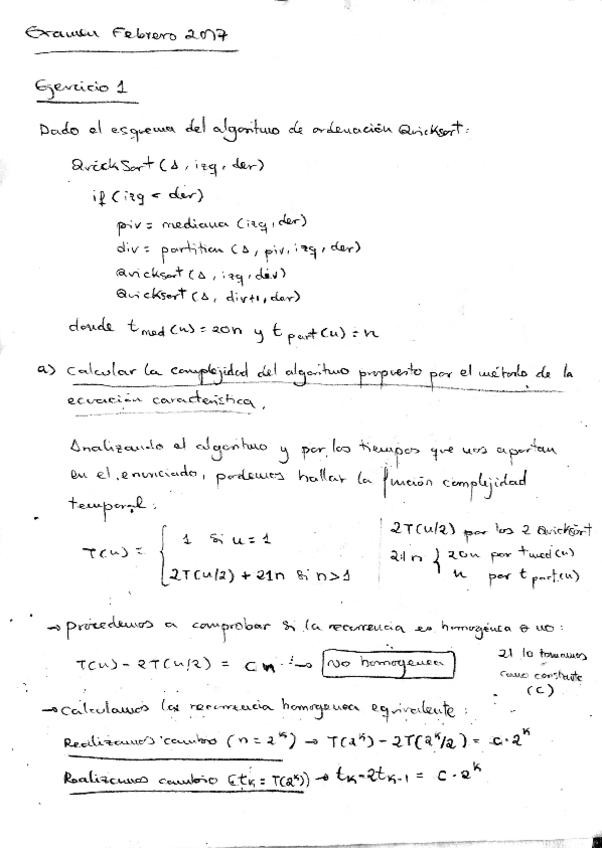 Examen Febrero 2017
Ejercicio 1
Dado el esquema del algoritmo de ordenación Quicksort:
QuickSort (A, izq, der)
if (izq < der)
piv = mediana (izq, der)
div = partition (A, piv, izq, der)
Quicksort (A, izq, div)
Quicksort (A, div+1, der)
donde t med (n) = 20n y t part (n) = n
a) Calcular la complejidad del algoritmo propuesto por el método de la
ecuación característica.
Analizando el algoritmo y por los tiempos que nos aportan
en el enunciado, podemos hallar la función complejidad
temporal:
T(n) = { 1 si n = 1
2T(n/2) + 21n si n > 1
2T(n/2) por los 2 Quicksort
21n { 20n por t med (n)
n por t part (n)
→ procedemos a comprobar si la recurrencia es homogénea o no:
T(n) - 2T(n/2) = cn → No homogenea
21 lo tomamos
como constante
(C)
→ calculamos la recurrencia homogenea equivalente:
Realizamos cambio (n = 2^k) → T(2^k) - 2T(2^k/2) = c·2^k
Realizamos cambio (tk = T(2^k)) → tk - 2tk-1 = c·2^k